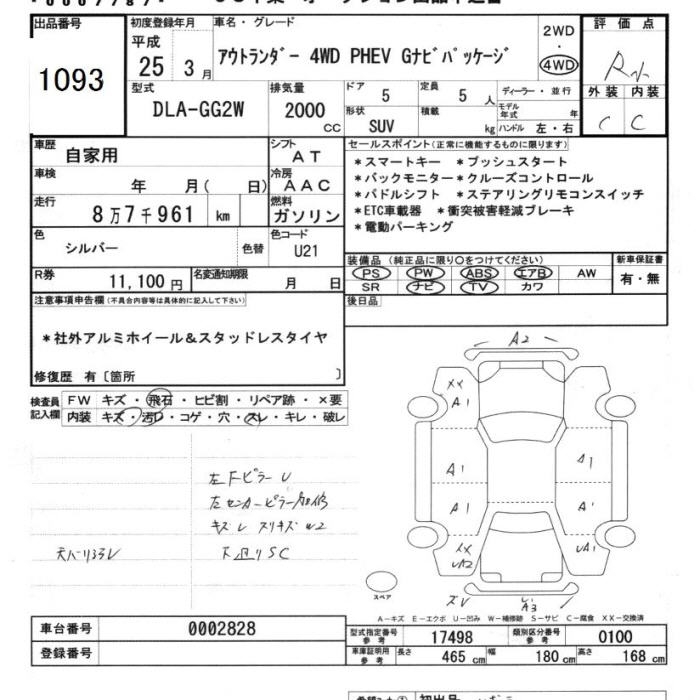 出品番号
1093
初度登録年月
平成
25 3月
車名・グレード
アウトランダー 4WD PHEV Gナビパッケージ
2WD
・
4WD
評価点
R
外装 内装
C C
型式
DLA-GG2W
排気量
2000
cc
ドア
5
定員
5 人
形状
SUV
積載
kg
ディーラー・並行
モデル年式 年
ハンドル 左・右
車歴
自家用
シフト
AT
車検
年 月( 日)
冷房
AAC
走行
8万7千961 km
燃料
ガソリン
色
シルバー
色替
色コード
U21
R券
11,100 円
名変通知期限
月 日
セールスポイント(正常に機能するものに限ります)
*スマートキー *プッシュスタート
*バックモニター*クルーズコントロール
*パドルシフト *ステアリングリモコンスイッチ
*ETC車載器 *衝突被害軽減ブレーキ
*電動パーキング
装備品(純正品に限り○をつけてください)
PS PW ABS エアB AW
SR ナビ TV カワ
新車保証書
有・無
後日品
注意事項申告欄(不具合内容等は具体的に記入して下さい)
*社外アルミホイール&スタッドレスタイヤ
修復歴 有〔箇所 〕
検査員
記入欄
FW キズ・飛石・ヒビ割・リペア跡・×要
内装 キズ・汚レ・コゲ・穴・スレ・キレ・破レ
左Fピラー U
左センターピラー
キズ レ スリキズ W2
下廻りSC
A2
XX
A1
A1
A1
A1
A1
XX
UA2
UA1
A3
スペア
A-キズ E-エクボ U-凹み W-補修跡 S-サビ C-腐食 XX-交換済
車台番号
0002828
登録番号
型式指定番号
参考
17498
類別区分番号
参考
0100
車庫証明用
参考
長さ 465 cm 幅 180 cm 高さ 168 cm